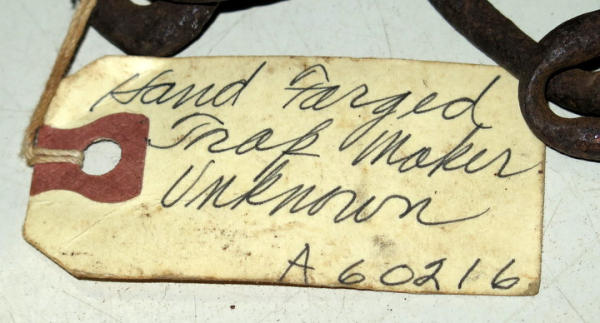 Hand Farged
Trap Maker
Unknown
A60216